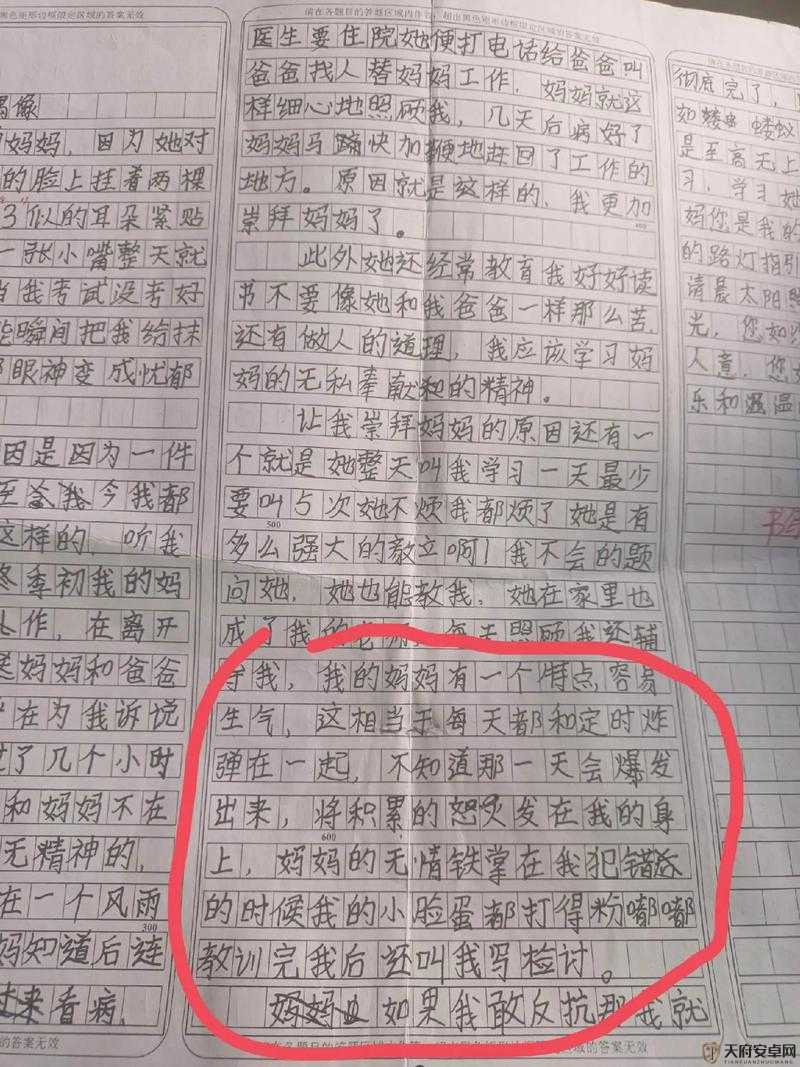 黑色矩形边框限定区域的答案无效
偶像
妈妈，因为她对
的脸上挂着两棵
3似的耳朵紧贴
一张小嘴整天就
当我考试没考好
能瞬间把我给抹
眼神变成忧郁
因是因为一件
今我都
这样的，听我
冬季初我的妈
工作，在离开
妈妈和爸爸
在为我诉说
过了几个小时
和妈妈不在
无精神的，
在一个风雨
300
妈知道后连
过来看病，
的答案无效
请在各题目的答题区域内作答，超出黑色矩形边框限定区域的答案无效
医生要住院她便打电话给爸爸叫
爸爸找人替妈妈工作，妈妈就这
样细心地照顾我，几天后病好了
妈妈马蹄快加鞭地赶回了工作的
地方。原因就是这样的，我更加
崇拜妈妈了。
400
此外她还经常教育我好好读
书不要像她和我爸爸一样那么苦，
还有做人的道理，我应该学习妈
妈的无私奉献和的精神。
让我崇拜妈妈的原因还有一
个就是她整天叫我学习一天最少
要叫5次她不烦我都烦了她是有
500
多么强大的教立啊！我不会的题
问她，她也能教我，她在家里也
成了我的老师，每天照顾我还辅
导我，我的妈妈有一个特点容易
生气，这相当于每天都和定时炸
弹在一起，不知道那一天会爆发
出来，将积累的怒火发在我的身
600
上，妈妈的无情铁掌在我犯错
的时候我的小脸蛋都打得粉嘟嘟
教训完我后还叫我写检讨。
如果我敢反抗那我就
请在各题目的答题区域内作答，超出黑色矩形边框限定区域的答案无效
彻底完了，
如蝼 蝼蚁
是至高无上
习，学习她
妈您是我的
的路灯指引
清晨太阳
光，您如
人意，您
乐和温
天府安卓网
TIANFUANZHUOWANG